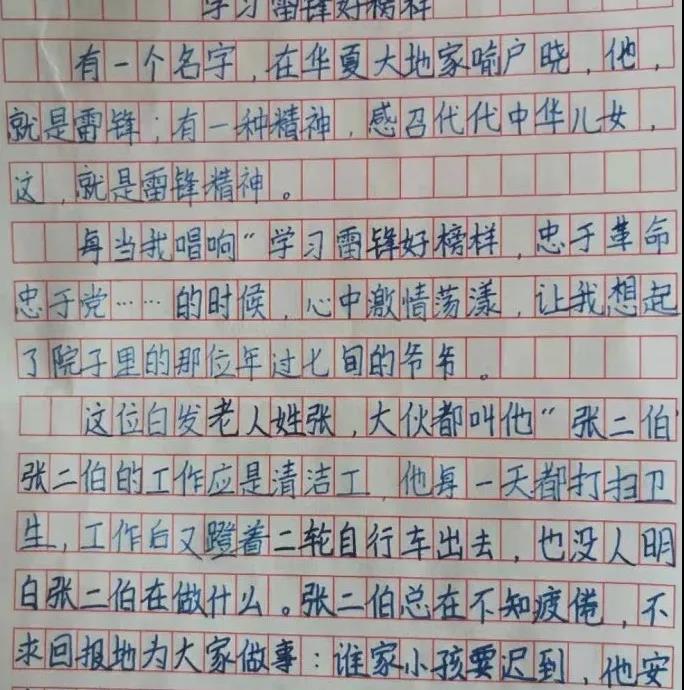 学习雷锋好榜样
有一个名字，在华夏大地家喻户晓，他，
就是雷锋；有一种精神，感召代代中华儿女，
这，就是雷锋精神。
每当我唱响“学习雷锋好榜样，忠于革命
忠于党……的时候，心中激情荡漾，让我想起
了院子里的那位年过七旬的爷爷。
这位白发老人姓张，大伙都叫他“张二伯”
张二伯的工作应是清洁工，他每一天都打扫卫
生，工作后又蹬着二轮自行车出去，也没人明
白张二伯在做什么。张二伯总在不知疲倦，不
求回报地为大家做事：谁家小孩要迟到，他安